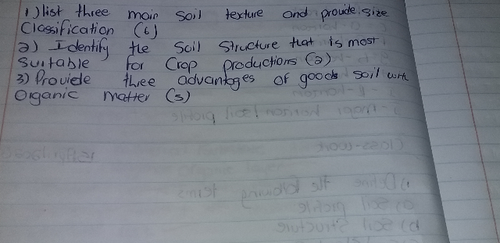 1) list three main soil texture and provide size
Classification (6)
2) Identify the Soil Structure that is most
Suitable for Crop productions (2)
3) Provide three advantages of goods soil with
Organic matter (5)